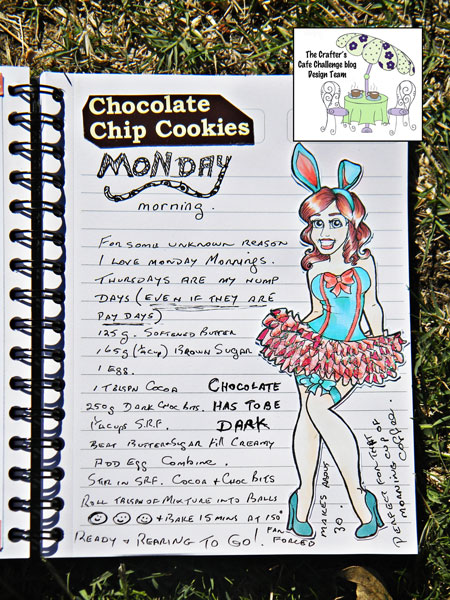 The Crafter's
Cafe Challenge blog
Design Team
Chocolate
Chip Cookies
MONDAY
morning.
FOR SOME UNKNOWN REASON
I LOVE MONDAY MORNINGS.
THURSDAYS ARE MY HUMP
DAYS (EVEN IF THEY ARE
PAY DAYS)
125g. SOFTENED BUTTER
165g (¾cup) BROWN SUGAR
1 EGG.
1 TBLSPN COCOA
250g DARK CHOC BITS.
CUPS S.R.F.
CHOCOLATE
HAS TO BE
DARK
BEAT BUTTER+SUGAR TILL CREAMY
ADD EGG COMBINE.
STIR IN SRF. COCOA + CHOC BITS
ROLL TBLSPN OF MIXTURE INTO BALLS
+ BAKE 15 MINS AT 150°
FAN
FORCED
READY + REARING TO GO!
MAKES ABOUT
30.
PERFECT FOR THAT
MORNING CUP OF
COFFEE.